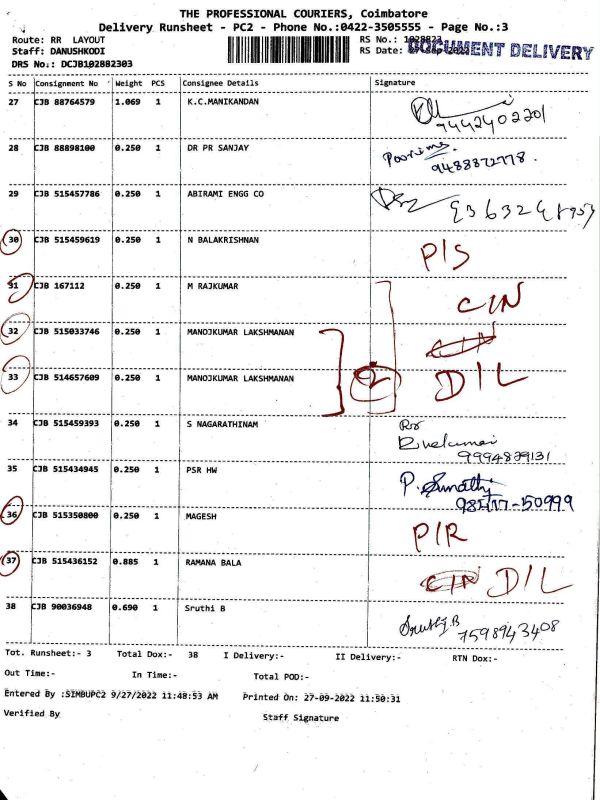 THE PROFESSIONAL COURIERS, Coimbatore
Delivery Runsheet - PC2 - Phone No.:0422-3505555 - Page No.:3
Route: RR LAYOUT RS No.: 1028823
Staff: DANUSHKODI RS Date: 27-Sep-2022
DOCUMENT DELIVERY
DRS No.: DCJB102882303
S No Consignment No Weight PCS Consignee Details Signature
27 CJB 88764579 1.069 1 K.C.MANIKANDAN
9442402201
28 CJB 88898100 0.250 1 DR PR SANJAY
Poornima
9488872778.
29 CJB 515457786 0.250 1 ABIRAMI ENGG CO
30 CJB 515459619 0.250 1 N BALAKRISHNAN
P/S
31 CJB 167112 0.250 1 M RAJKUMAR
C/N
32 CJB 515033746 0.250 1 MANOJKUMAR LAKSHMANAN
33 CJB 514657609 0.250 1 MANOJKUMAR LAKSHMANAN
2 D/L
34 CJB 515459393 0.250 1 S NAGARATHINAM
9994829131
35 CJB 515434945 0.250 1 PSR HW
P. Sumathi
36 CJB 515350800 0.250 1 MAGESH
P/R
37 CJB 515436152 0.885 1 RAMANA BALA
D/L
38 CJB 90036948 0.690 1 Sruthi B
Sruthi.B
7598943408
Tot. Runsheet:- 3 Total Dox:- 38 I Delivery:- II Delivery:- RTN Dox:-
Out Time:- In Time:- Total POD:-
Entered By :SIMBUPC2 9/27/2022 11:48:53 AM Printed On: 27-09-2022 11:50:31
Verified By Staff Signature